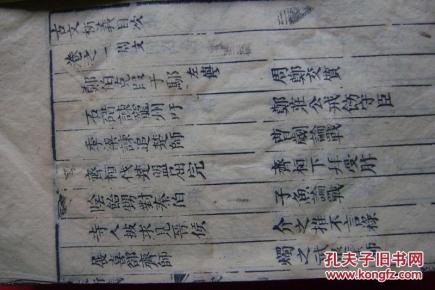 古文析義目次
卷之一 周文
鄭伯克段于鄢 左傳 周鄭交質
石碏諫寵州吁 鄭莊公戒飭守臣
季梁諫追楚師 曹劌論戰
齊桓伐楚盟屈完 齊桓下拜受胙
陰飴甥對秦伯 子魚論戰
寺人披求見晉侯 介之推不言祿
展喜犒齊師 燭之武退秦師
孔夫子旧书网
www.kongfz.com